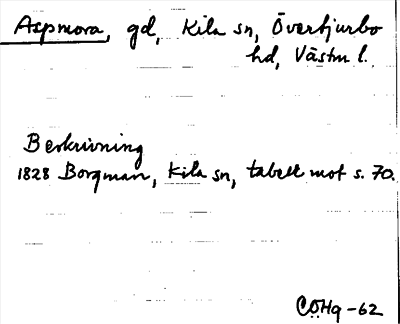 Aspmora, gd, Kila sn, Övertjurbo
hd, Västm l.
Beskrivning
1828 Borgman, Kila sn, tabell mot s. 70.
CÖHq-62